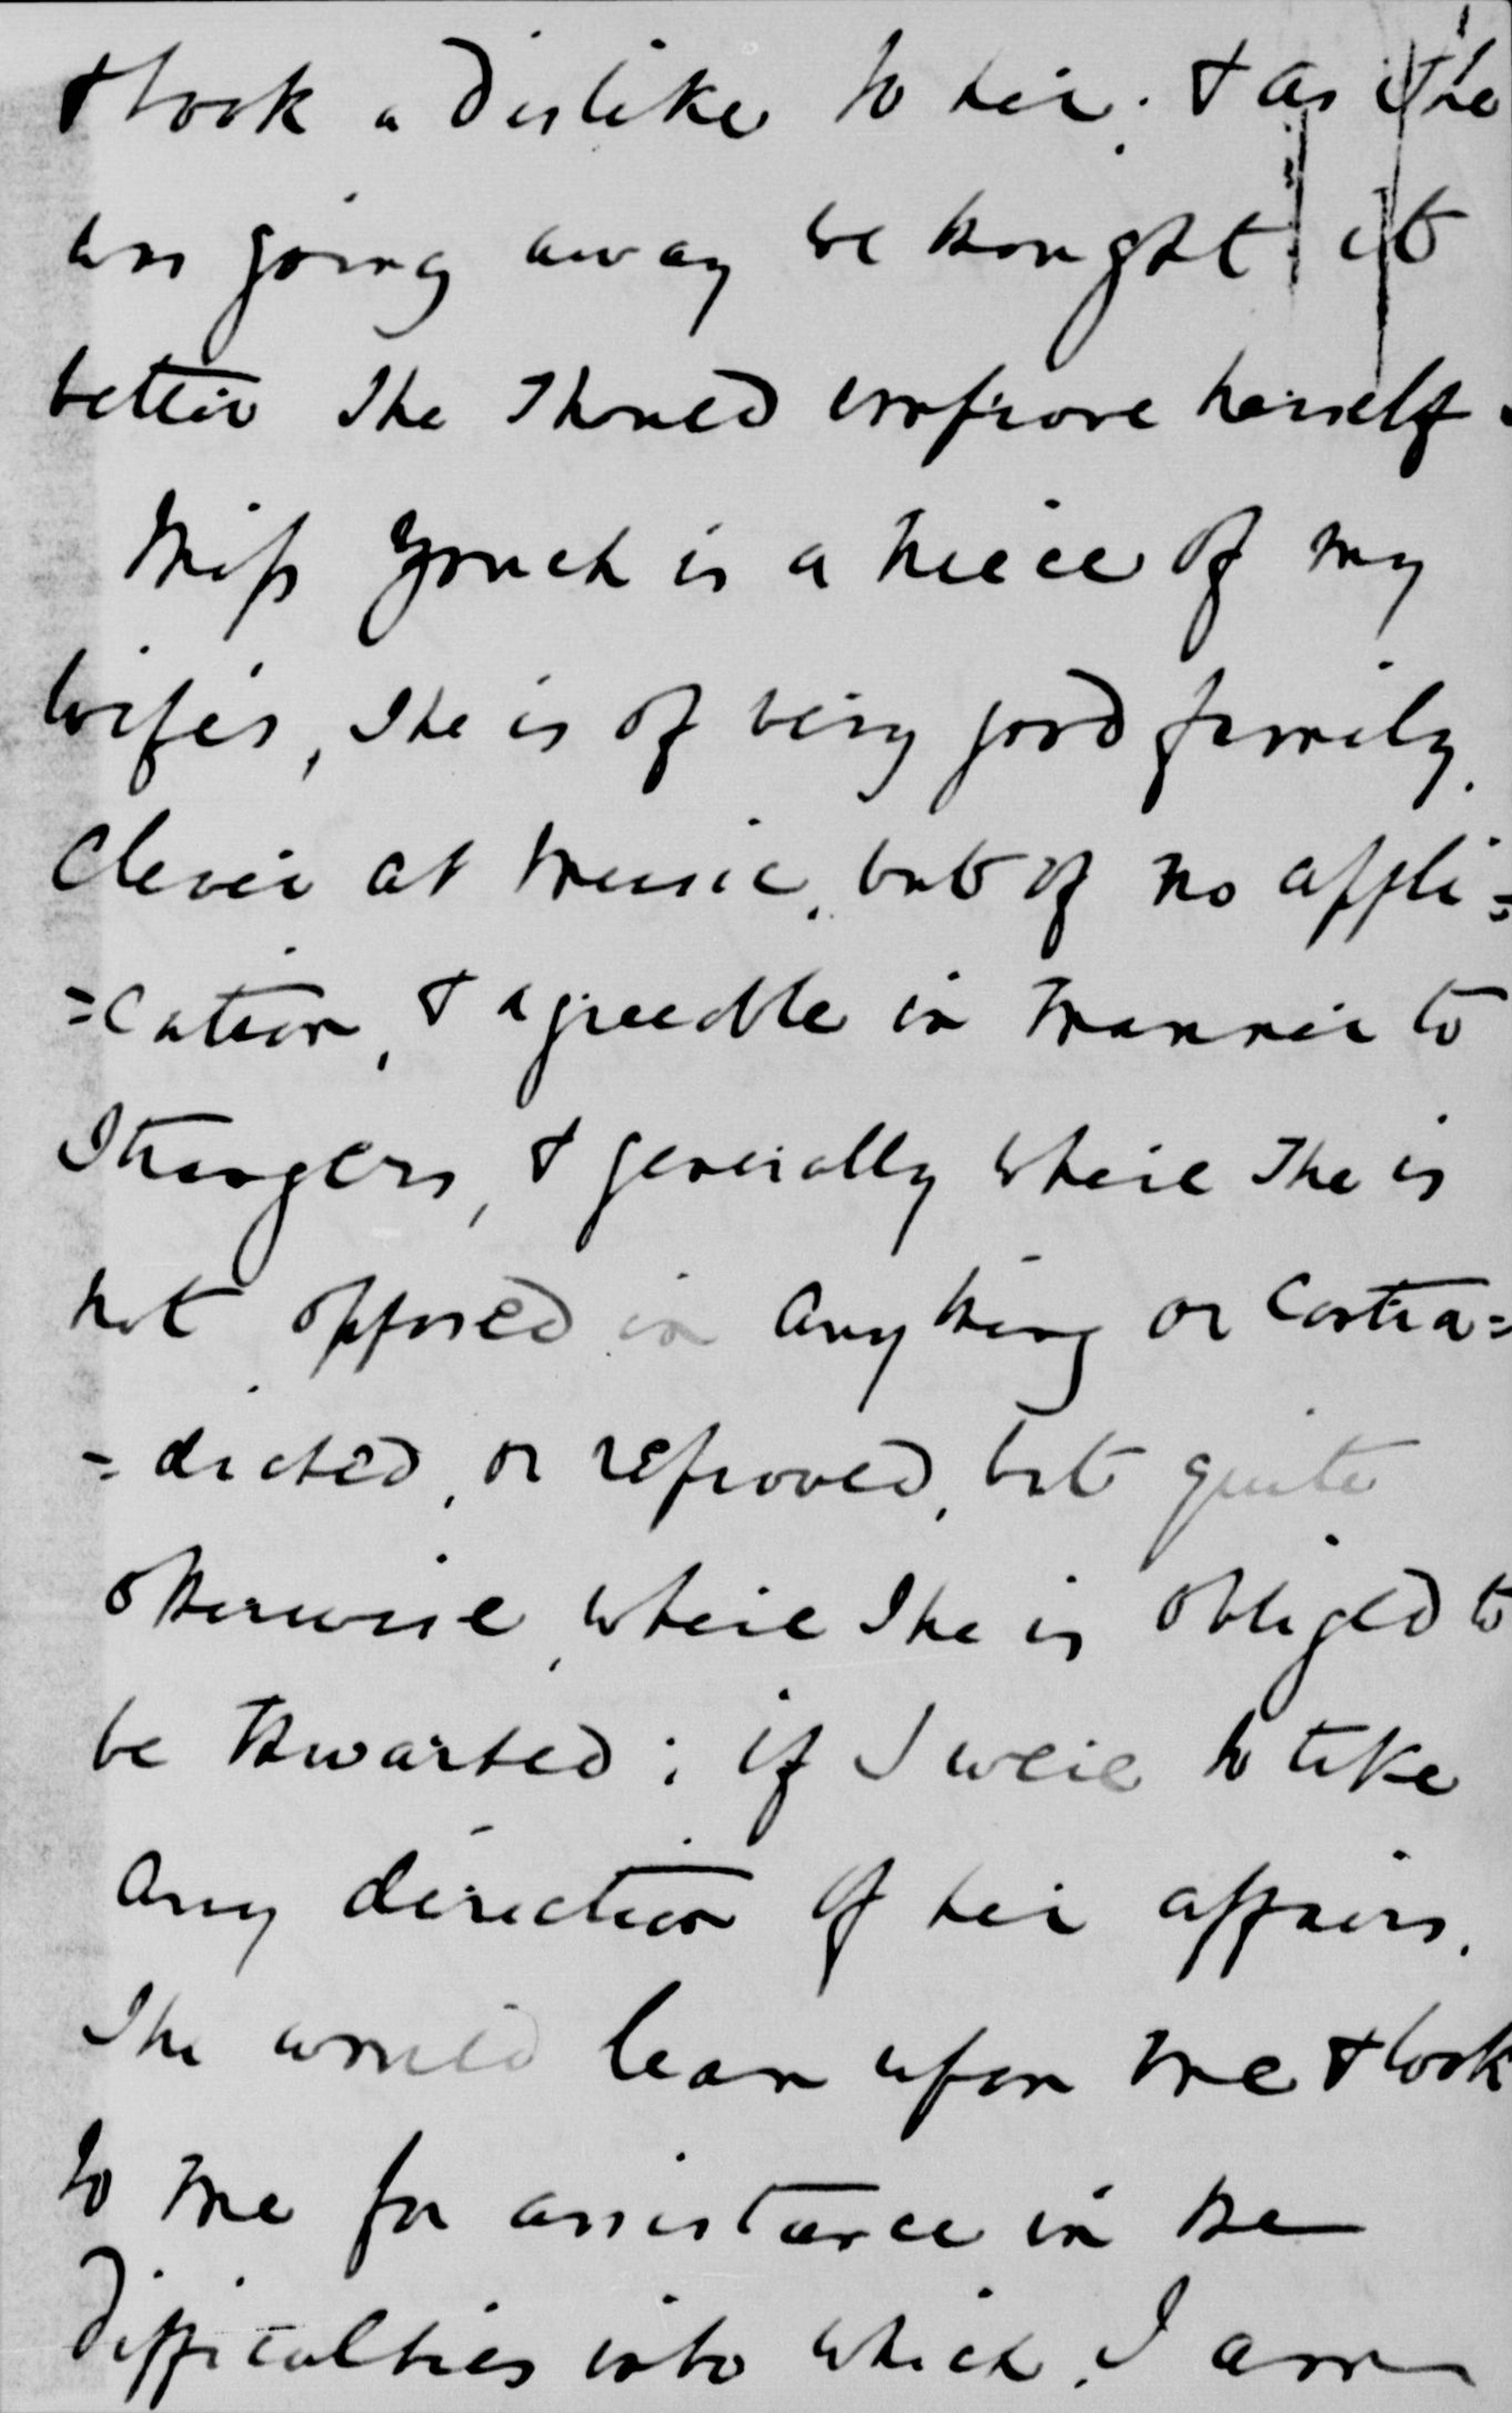 & took a dislike to her. & as she
was going away we thought it
better she should improve herself.
Miss Zouch is a niece of my
wife's, she is of very good family.
Clever at music, but of no appli=
=cation, & agreeable in manner to
Strangers, & generally where she is
not opposed in anything or Contra=
=dicted, or reproved, but quite
otherwise, where she is obliged to
be thwarted; if I were to take
any direction of her affairs.
She would lean upon me & look
to me for assistance in the
difficulties into which, I am